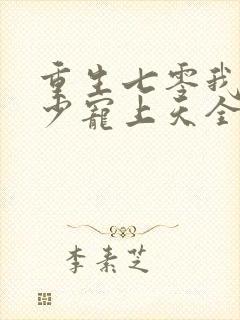 重生七零我
少宠上天全
李素芝